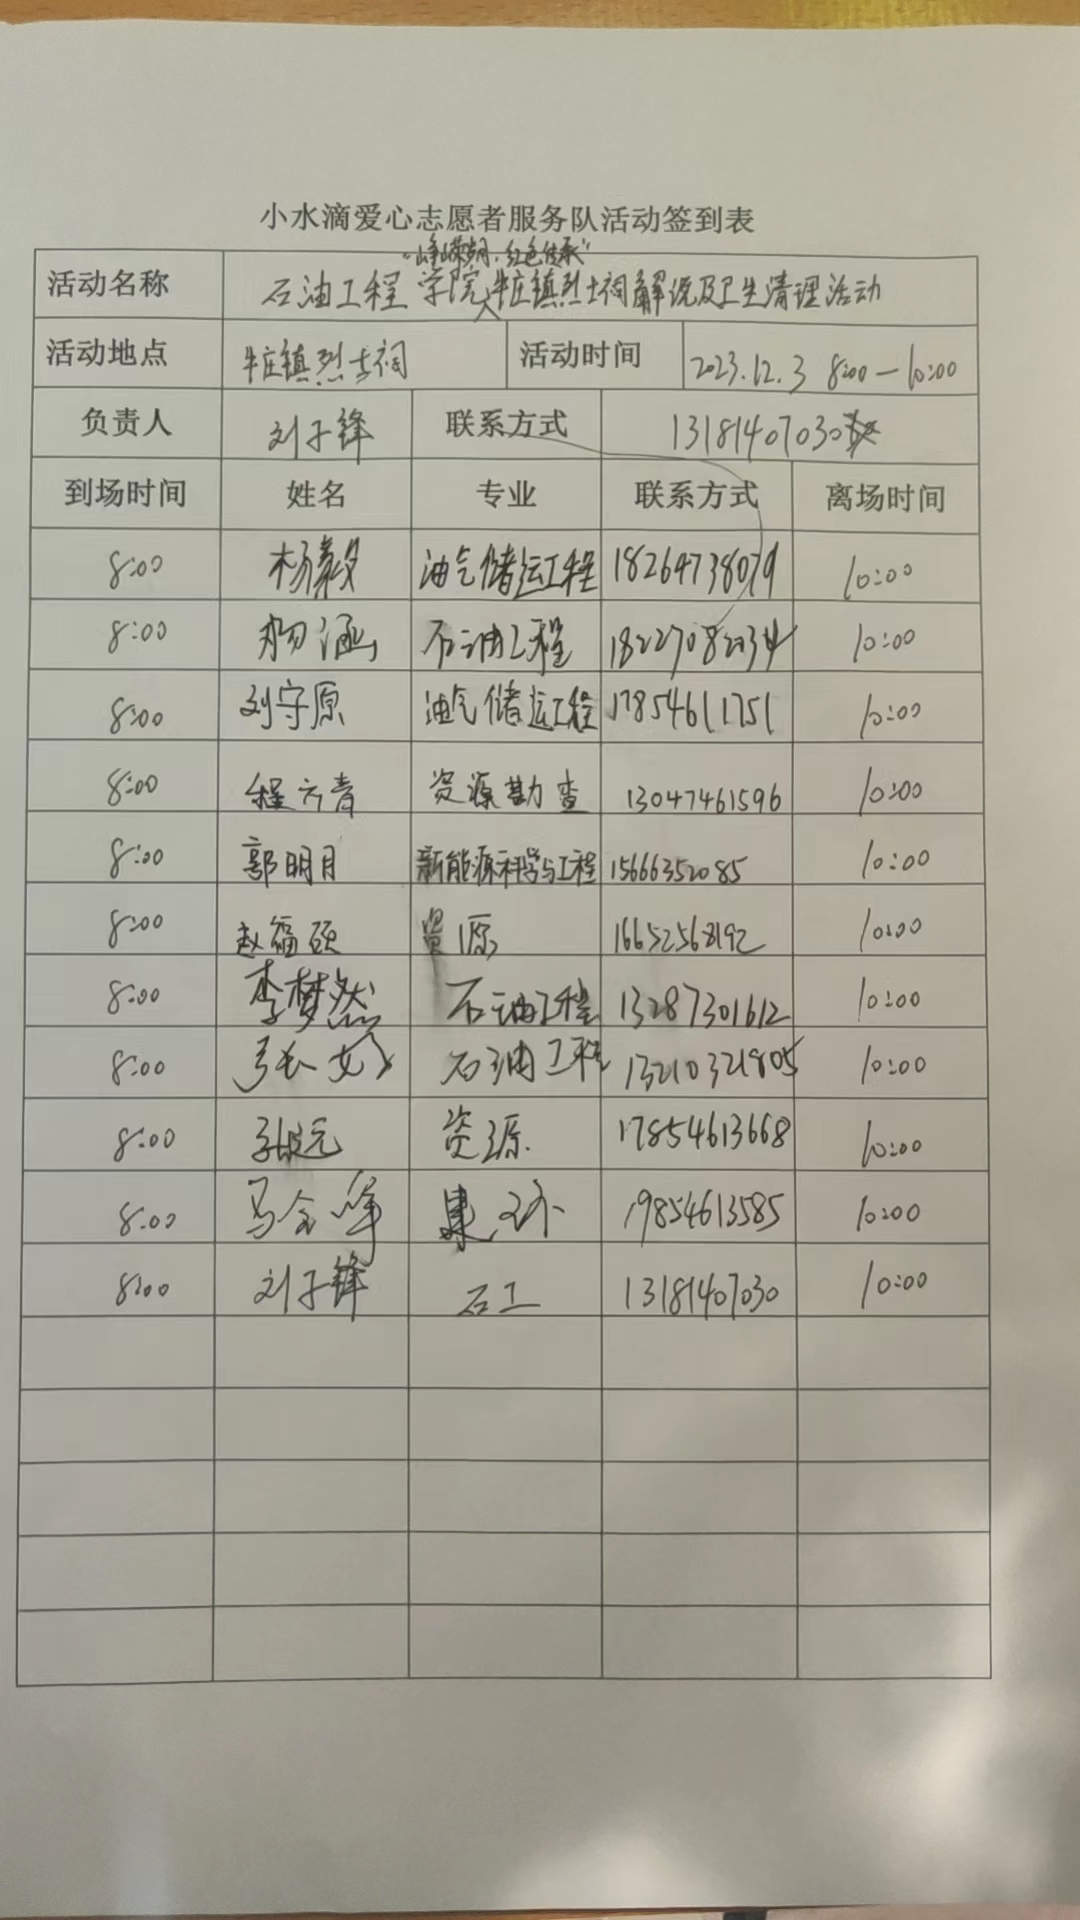 小水滴爱心志愿者服务队活动签到表
"峥嵘岁月,红色传承"
活动名称 石油工程学院牛庄镇烈士祠解说及卫生清理活动
活动地点 牛庄镇烈士祠 活动时间 2023.12.3 8:00—10:00
负责人 刘子锋 联系方式 13181407030
到场时间 姓名 专业 联系方式 离场时间
8:00 杨毅 油气储运工程 18264738079 10:00
8:00 杨涵 石油工程 18227082034 10:00
8:00 刘守原 油气储运工程 17854611751 10:00
8:00 程方青 资源勘查 13047461596 10:00
8:00 郭明月 新能源科学与工程 15666352085 10:00
8:00 赵福硕 资源 16652568192 10:00
8:00 李梦然 石油工程 13287301612 10:00
8:00 张 石油工程 13210321805 10:00
8:00 资源 17854613668 10:00
8:00 马全峰 19854613585 10:00
8:00 刘子锋 石工 13181407030 10:00